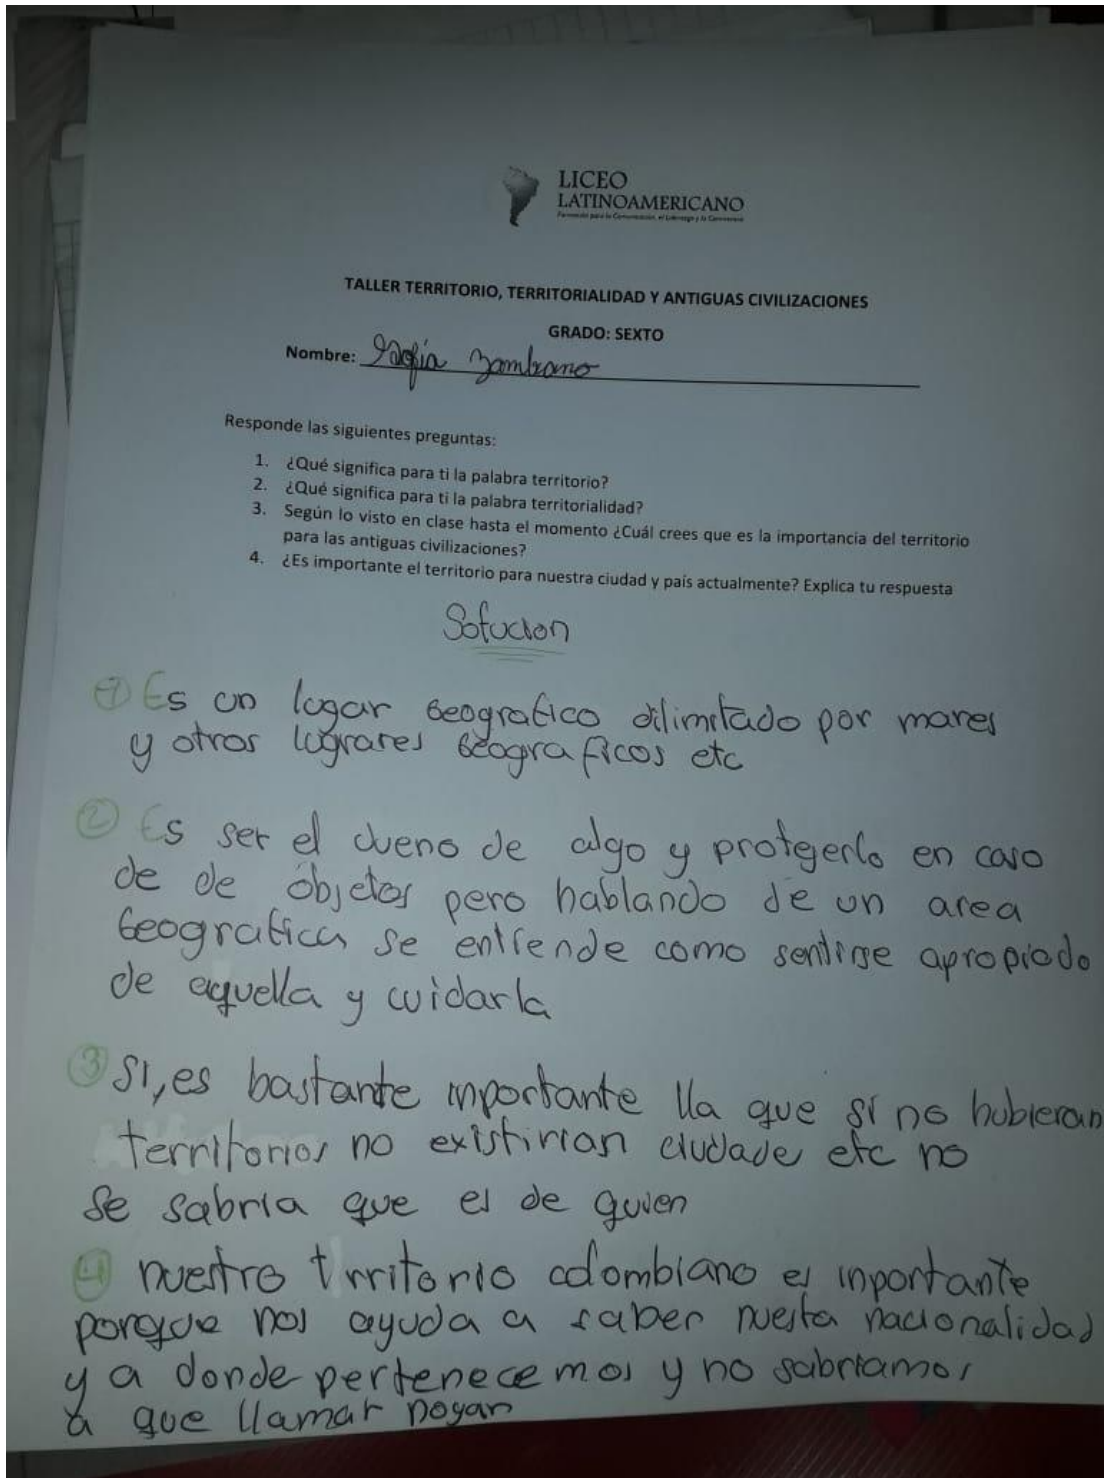 LICEO
LATINOAMERICANO
TALLER TERRITORIO, TERRITORIALIDAD Y ANTIGUAS CIVILIZACIONES
GRADO: SEXTO
Nombre: Sofia Zambrano
Responde las siguientes preguntas:
1. ¿Qué significa para ti la palabra territorio?
2. ¿Qué significa para ti la palabra territorialidad?
3. Según lo visto en clase hasta el momento ¿Cuál crees que es la importancia del territorio
para las antiguas civilizaciones?
4. ¿Es importante el territorio para nuestra ciudad y país actualmente? Explica tu respuesta
Solucion
1 Es un lugar Geografico dilimitado por mares
y otros lugrares Geograficos etc
2 Es ser el dueno de algo y protegerlo en caso
de de objetos pero hablando de un area
Geografica se entiende como sentirse apropiado
de aquella y cuidarla
3 SI, es bastante inportante lla que si no hubieran
territorios no existirian ciudade etc no
se sabria que es de quien
4 nuestro trritorio colombiano es inportante
porque nos ayuda a saber nuesta nacionalidad
y a donde pertenecemos y no sabriamos
a que llamar hogar